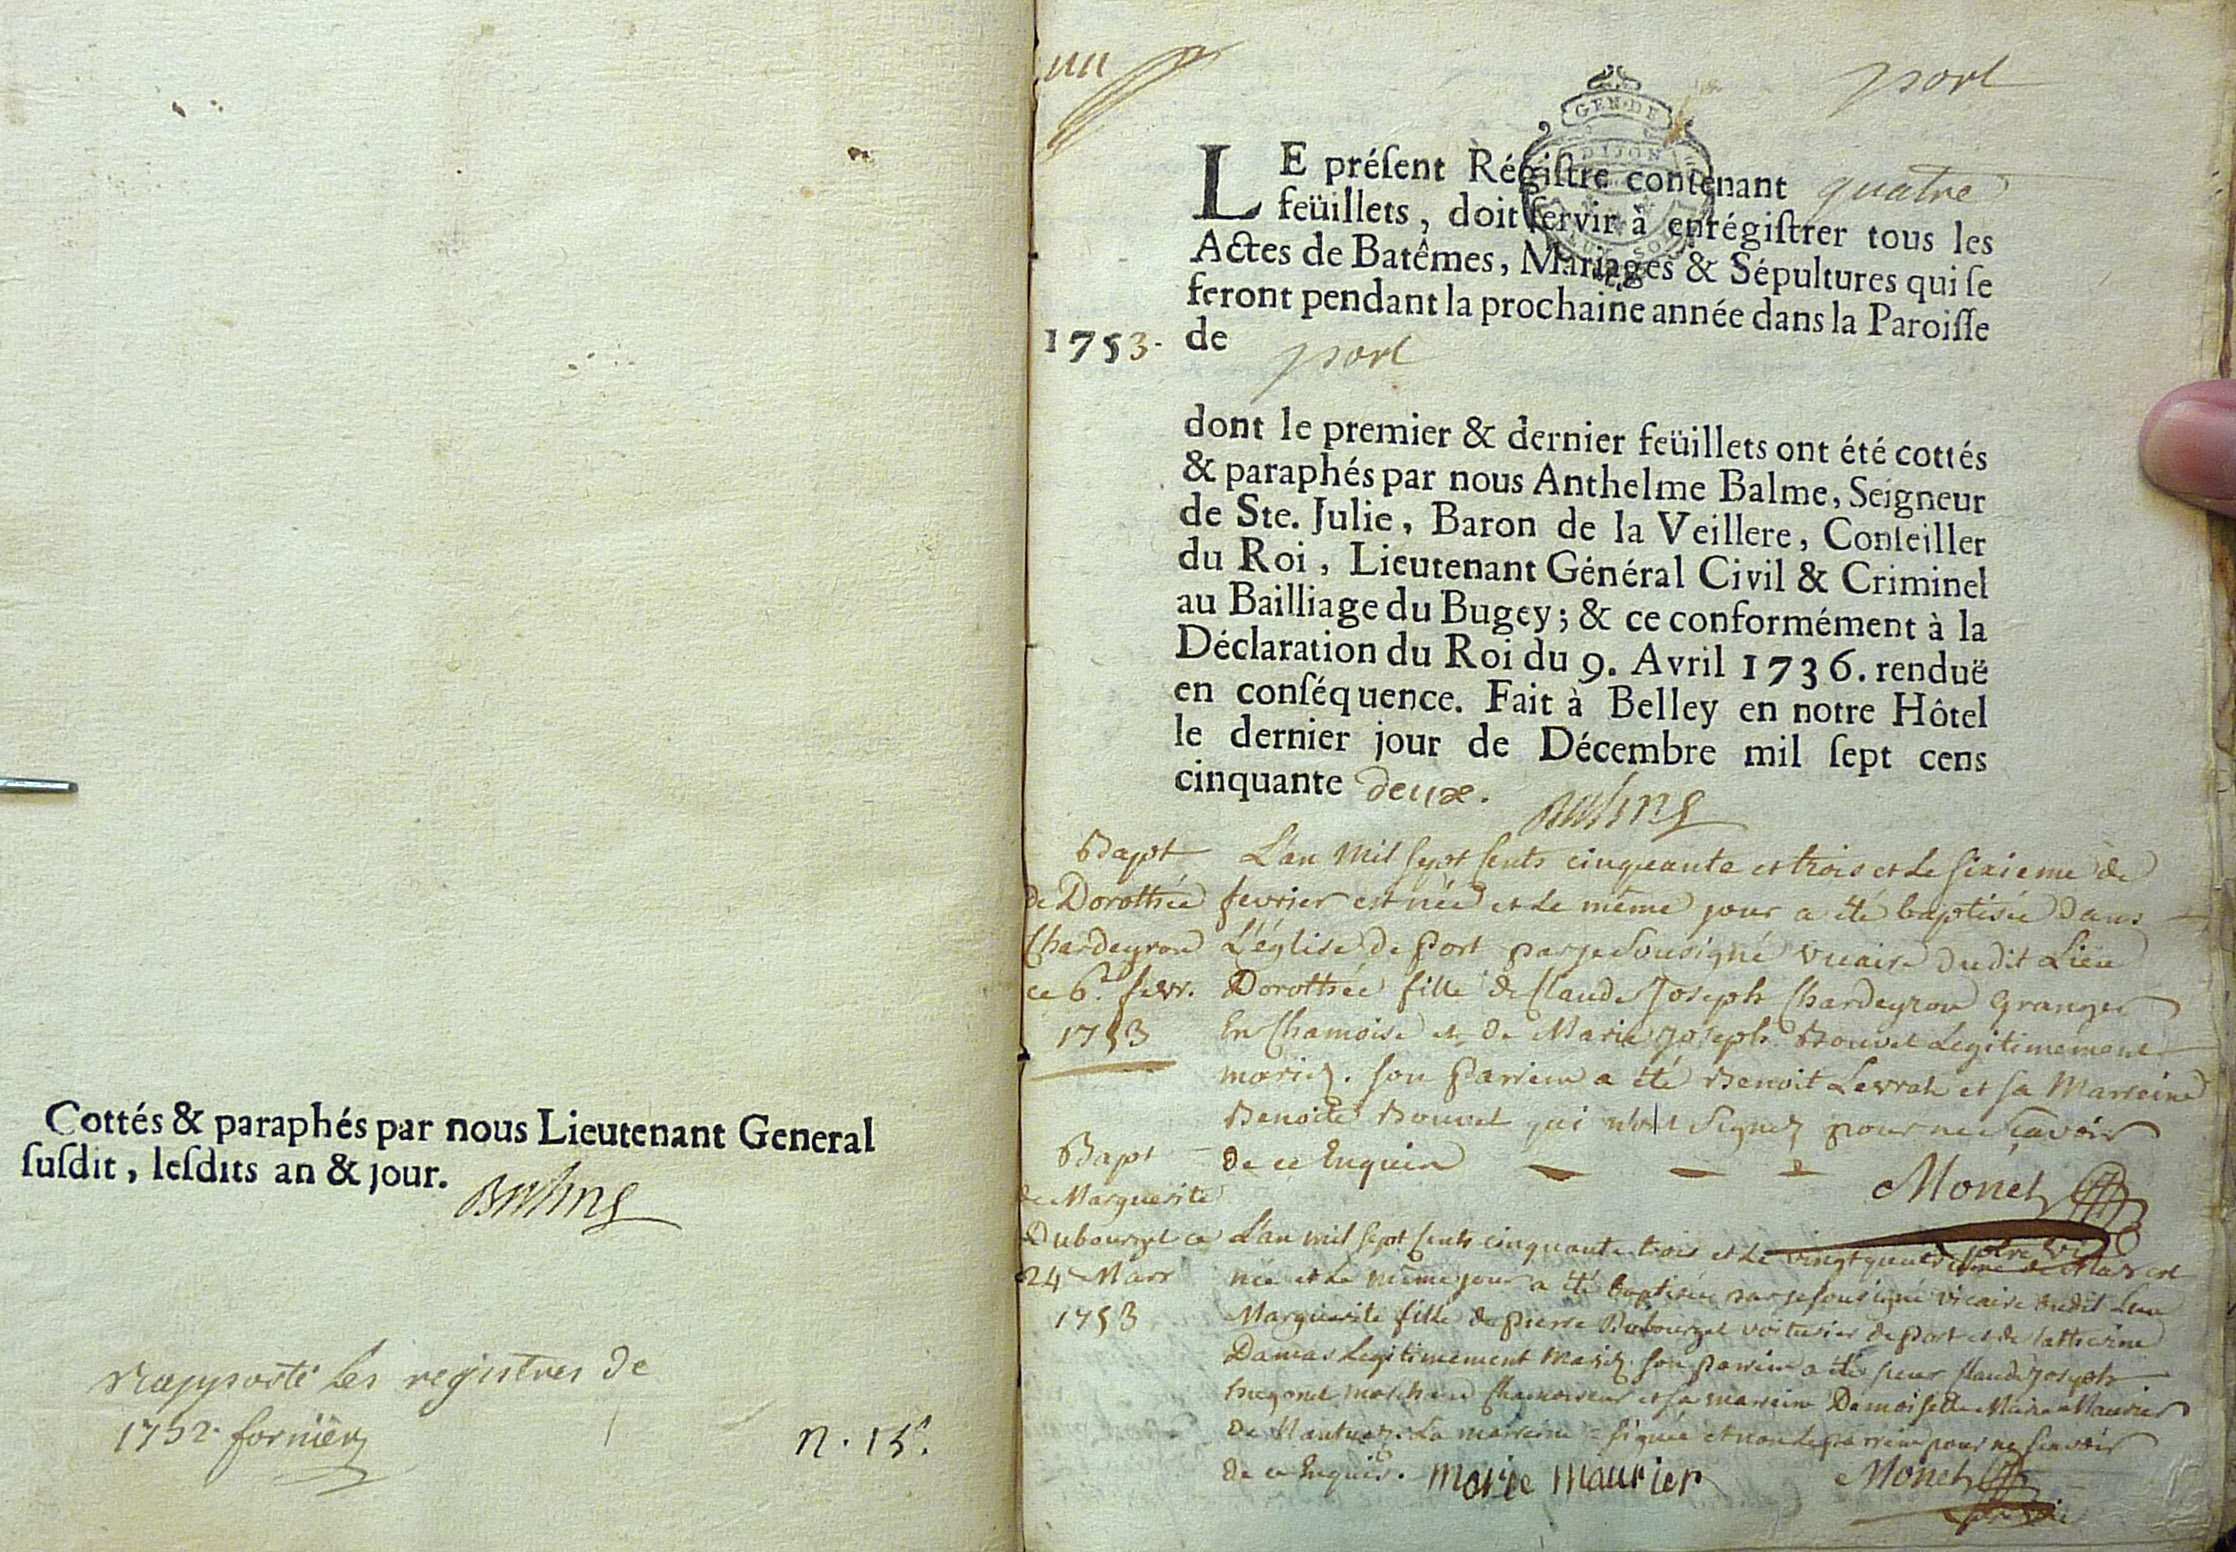 Cottés & paraphés par nous Lieutenant General
suſdit, leſdits an & jour.
rapporté les registres de
1752. fornier
n. 15.
un
port
GEN. DE
DIJON
LE préſent Régiſtre contenant quatre
feüillets, doit ſervir à enrégiſtrer tous les
Actes de Batêmes, Mariages & Sépultures qui ſe
feront pendant la prochaine année dans la Paroiſſe
1753. de port
dont le premier & dernier feüillets ont été cottés
& paraphés par nous Anthelme Balme, Seigneur
de Ste. Julie, Baron de la Veillere, Conſeiller
du Roi, Lieutenant Général Civil & Criminel
au Bailliage du Bugey; & ce conformément à la
Déclaration du Roi du 9. Avril 1736. renduë
en conſéquence. Fait à Belley en notre Hôtel
le dernier jour de Décembre mil ſept cens
cinquante deux.
Bapt
de Dorothée
Chardeyron
ce 6e fevr.
1753
L'an mil sept cents cinquante et trois et le sixieme de
fevrier est née et le même jour a été baptisée dans
L'église de Port par je sousigné vicaire dudit Lieu
Dorothée fille de Claude Joseph Chardeyron Granger
En Chamoise et de Marie Joseph Bouvet Legitimement
mariez. son Parrein a été Benoit Levrat et sa Marreine
Benoite Bouvet qui n'ont signez pour ne sçavoir
de ce Enquis
Monet
Bapt
de Marguerite
Dubourget ce
24 Mars
1753
L'an mil sept cents cinquante trois et le vingt quatrieme de Mars est
née et le même jour a été baptisée par je sousigné vicaire dudit Lieu
Marguerite fille de pierre Dubourget voiturier de Port et de Catherine
Damas Legitimement Mariez. son parrein a été sieur Claude Joseph
hugonet marchand Chamoiseur et sa marreine Demoiselle Marie Maurier
de Nantua. La marreine a signée et non le parrein pour ne sçavoir
de ce Enquis. marie maurier
Monet